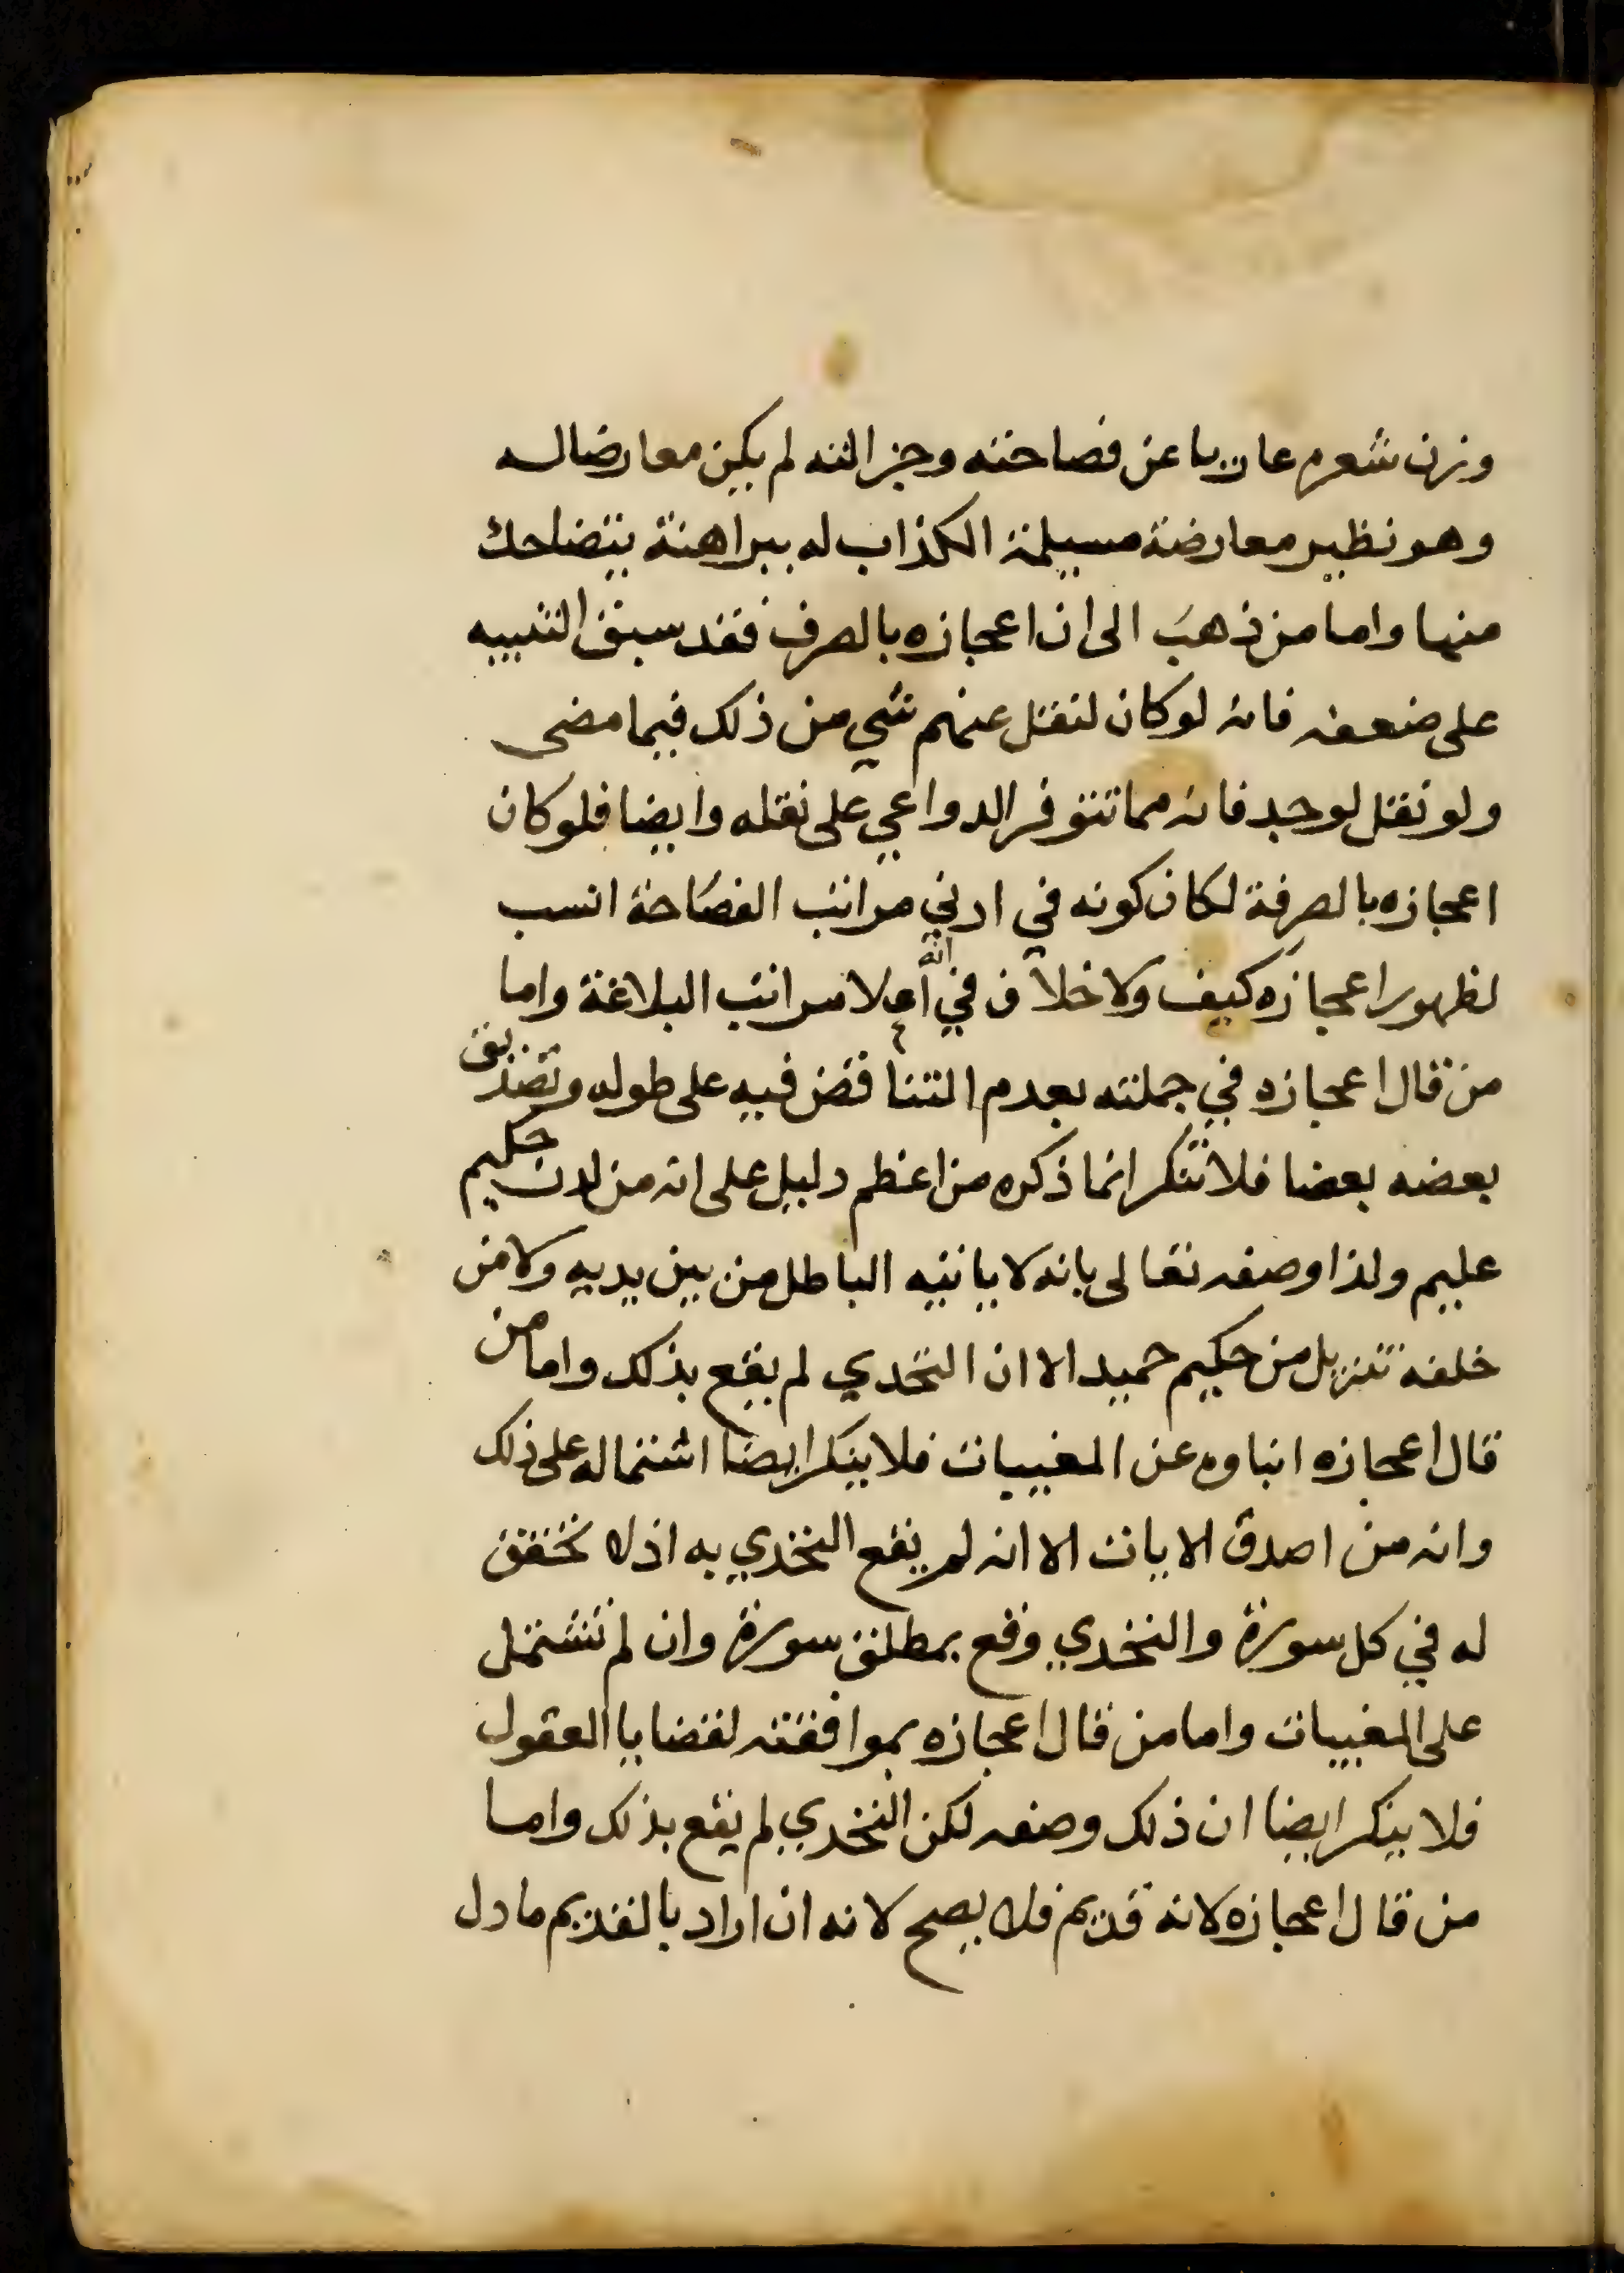 وزن شعره عاريا عن فصاحته وجزالته لم يكن معارضا له
وهو نظير معارضة مسيلمة الكذاب له ببراهنة يتضاحك
منها واما من ذهبَ الى ان اعجازه بالصرف فقد سبق التنبيه
على ضعفه فانه لو كان لنقل عنهم شي من ذلك فيما مضى
ولو نقل لوجد فانه مما تتوفر الدواعي على نقله وايضا فلو كان
اعجازه بالصرفة لكان كونه في ادني مراتب الفصَاحة انسب
لظهور اعجازه كيف ولا خلاف في انه اعلا مراتب البلاغة واما
من قال اعجازه في جملته بعدم التناقض فيه على طوله وتصديق
بعضه بعضا فلا ننكر انما ذكره من اعظم دليل على انه من لدن حكيم
عليم ولذا وصفه تعالى بانه لا ياتيه الباطل من بين يديه ولا من
خلفه تنزيل من حكيم حميد الا ان التحدي لم يقع بذلك واما من
قال اعجازه انباوه عن المغيبات فلا ينكر ايضا اشتماله على ذلك
وانه من اصدق الايات الا انه لم يقع التحدي به اذ لا تحقق
له في كل سورة والتحدي وقع بمطلق سورة وان لم تشتمل
على المغيبات واما من قال اعجازه بموافقته لقضايا العقول
فلا ينكر ايضا ان ذلك وصفه لكن التحدي لم يقع بذلك واما
من قال اعجازه لانه قديم فلا يصح لانه ان اراد بالقديم ما دل